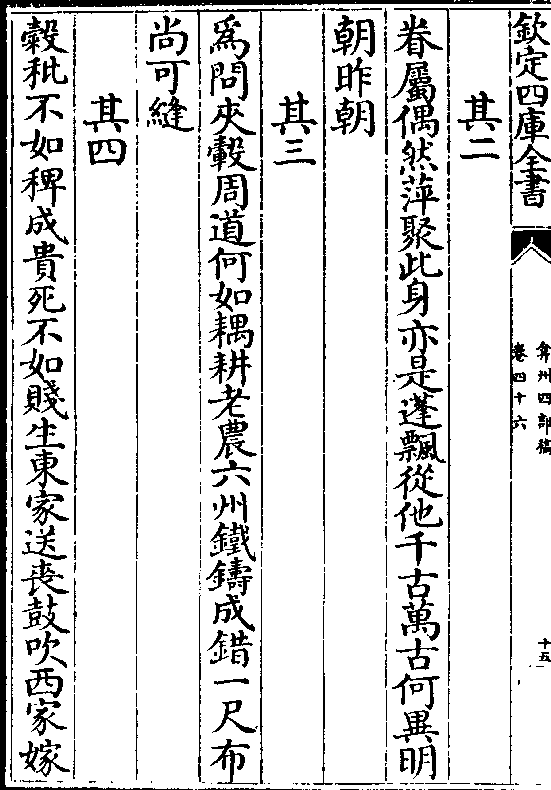 欽定四庫全書
弇州四部稿
卷四十六
十五
其二
眷屬偶然萍聚此身亦是蓬飄從他千古萬古何異明
朝昨朝
其三
爲問夾轂周道何如耦耕老農六州鐵鑄成錯一尺布
尚可縫
其四
穀秕不如稗成貴死不如賤生東家送喪鼓吹西家嫁